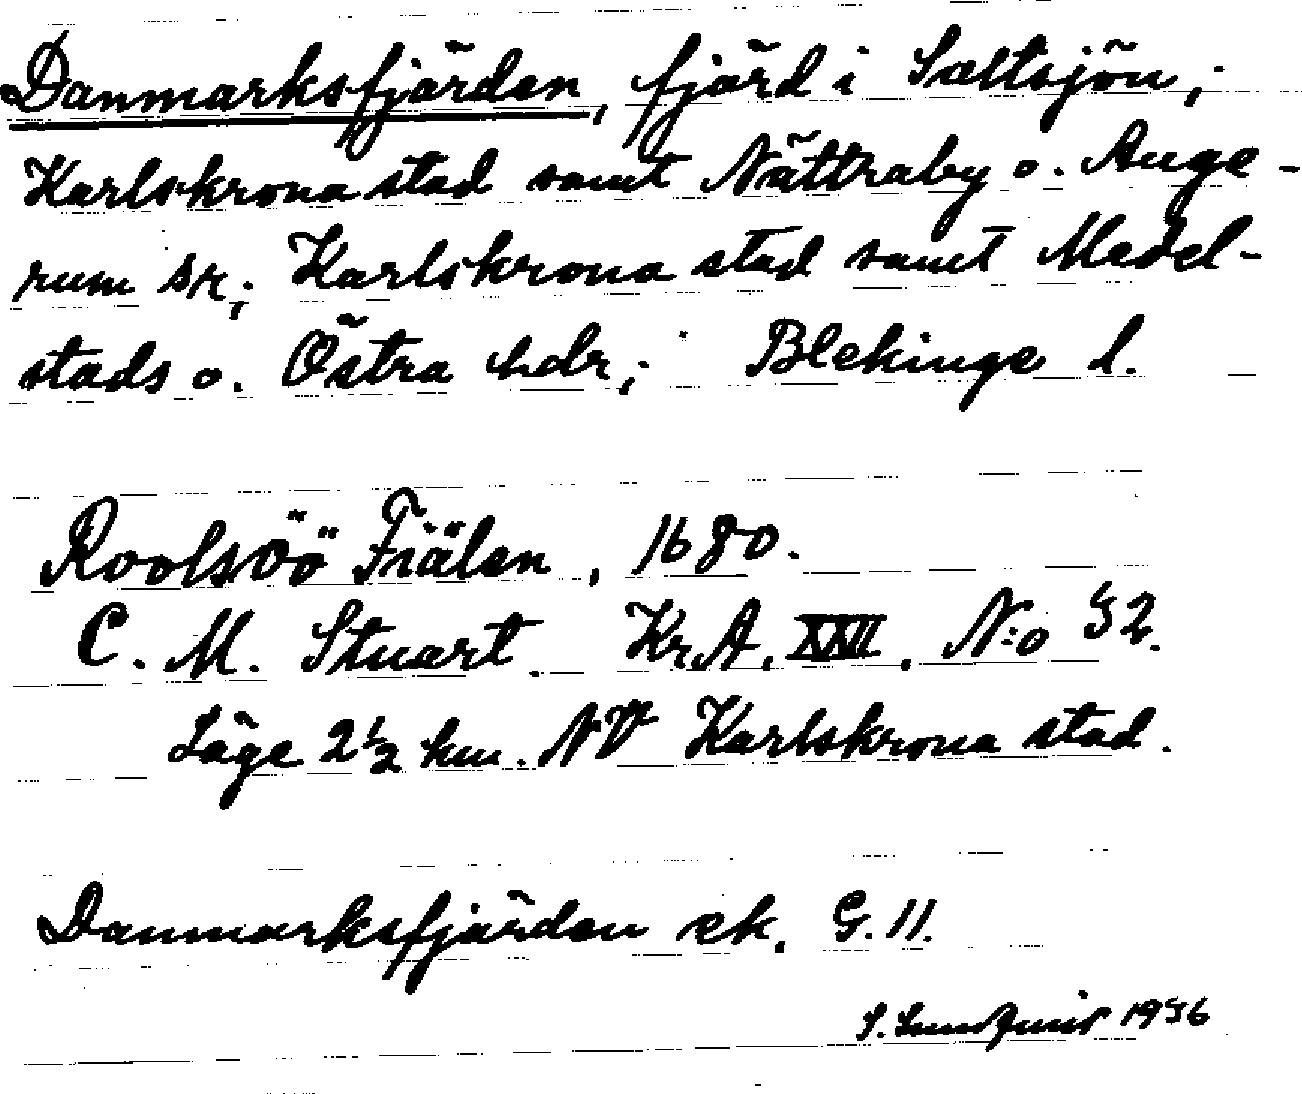 Danmarksfjärden, fjärd i Saltsjön;
Karlskrona stad samt Nättraby o. Auge-
rum sn; Karlskrona stad samt Medel-
stads o. Östra hdr; Blekinge l.
Roolsöö Fiälen, 1680.
C. M. Stuart. Kr.A. XXII, N:o 52.
Läge 2½ km. NV Karlskrona stad.
Danmarksfjärden ek. G. 11.
S. 1956